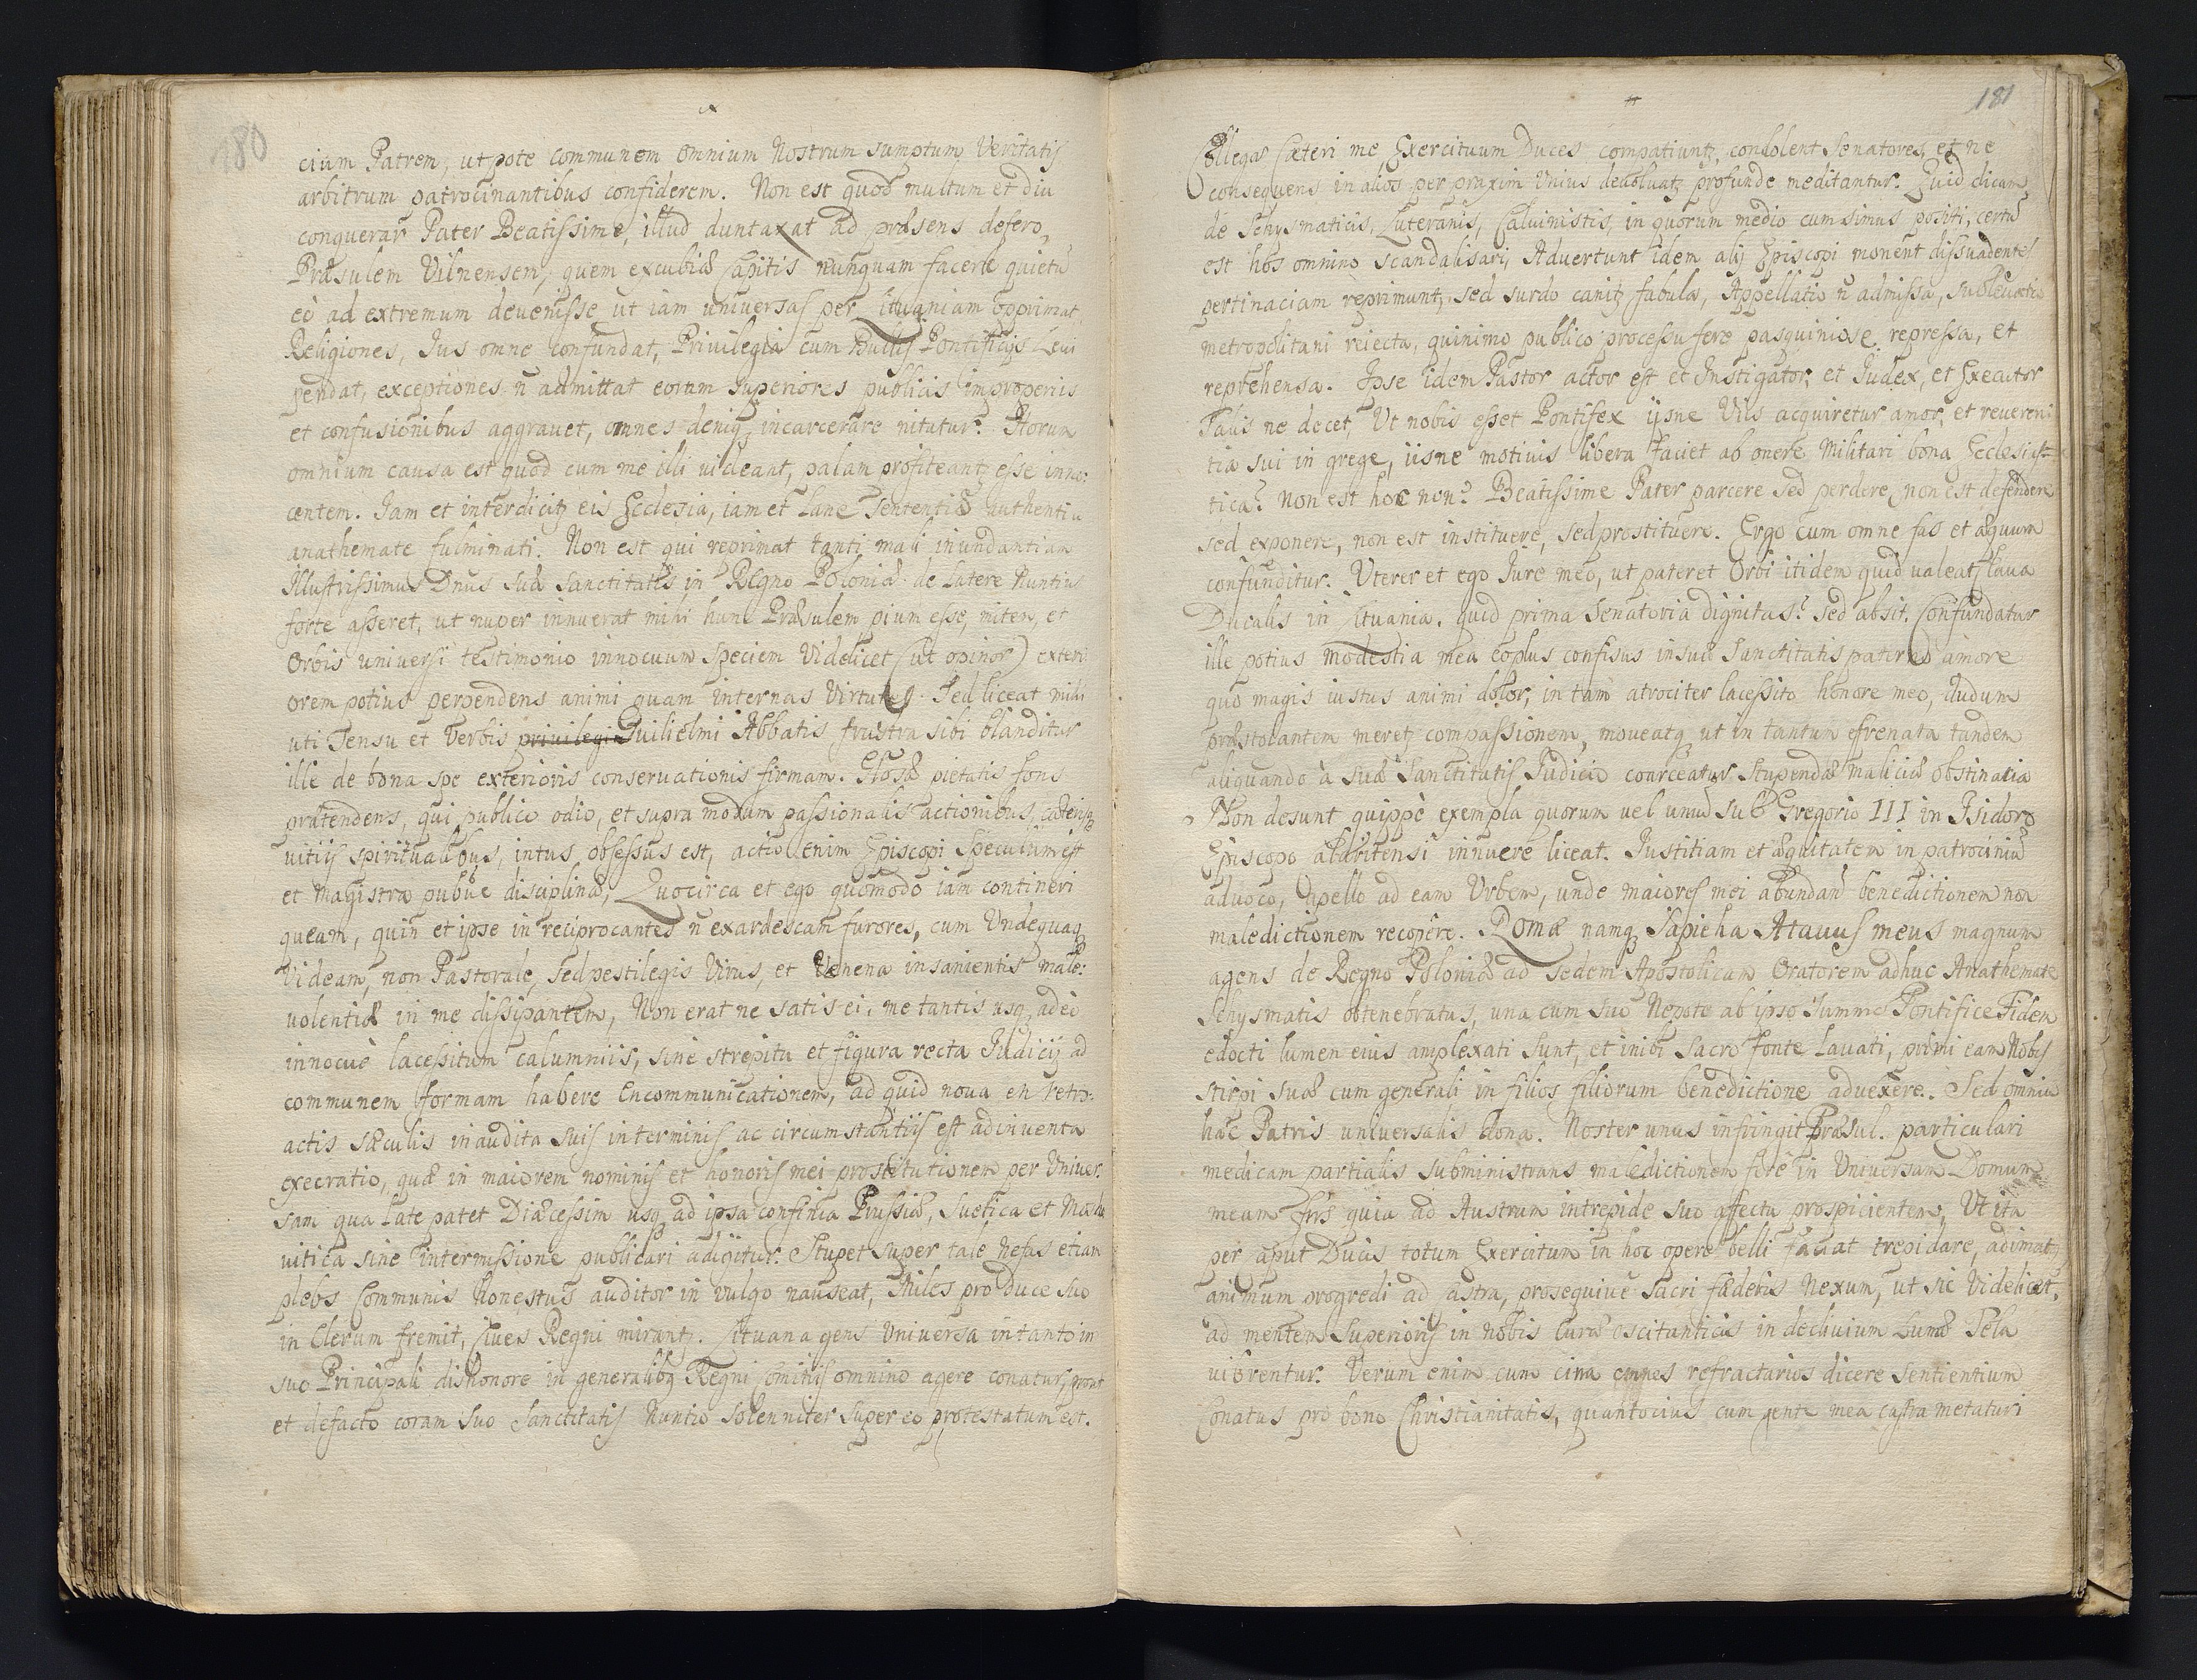 180
cium Patrem, ut pote communem omnium Nostrum sumptum Veritatis
arbitrum patrocinantibus confiderem. Non est quod multum et diu
conquerar Pater Beatissime, illud duntaxat ad præsens defero,
Præsulem Vilnensem, quem excubiæ Capitis nunquam facere quietū
eò ad extremum devenisse ut iam universas per Lituaniam opprimat
Religiones, Ius omne confundat, Privilegia cum Bullis Pontificijs Levi
pendat, exceptiones ñ admittat eorum Superiores publicis improperiis
et confusionibus aggravet, omnes deniq; incarcerare nitatur? Horum
omnium causa est quod cum me illi videant, palam profiteantꝫ esse inno:
centem. Iam et interdicitꝫ eis Ecclesia, iam et Lanæ Sententiæ authentiu
anathemate fulminati. Non est qui reprimat tanti mali inundantiam
Illustrissimus Dnus Suæ Sanctitatis in Regno Poloniæ de Latere Nuntius
forte asseret, ut nuper innuerat mihi hunc Præsulem pium esse, mitem, et
Orbis universi testimonio innocuum Speciem Videlicet (ut opinor) exteri
orem potius perpendens animi quam internas Virtutes. Sed liceat mihi
uti Sensu et Verbis privilegiu Guilielmi Abbatis frustra sibi blanditur
ille de bona spe exterioris conservationis firmam. Hosæ pietatis fons
prætendens, qui publico odio, et supra modum passionalis actionibus, cæterisq;
vitijs spiritualibus, intus obsessus est, actio enim Episcopi Speculum est
et Magistra publicæ disciplinæ, Quocirca et ego quomodo iam contineri
queam, quin et ipse in reciprocantes ñ exardescam furores, cum Undequaq;
Videam, non Pastorale, sed pestilegis Virus, et Venena insanientis male:
volentiæ in me dissipantem, Non erat ne satis ei, me tantis usq; adeò
innocuè lacessitum calumniis, sine strepitu et figura recta Iudicij ad
communem formam habere Encommunicationem, ad quid nova en retro:
actis sæculis inaudita suis in terminis ac circumstantiis est adinventa
execratio, quæ in maiorem nominis et honoris mei prostitutionem per Univer:
sam qua late patet Diæcessim usq; ad ipsa confinia Prussiæ, Suetica et Mosco
vitica sine intermissione publicari adigitur. Stupet super tale nefas etiam
plebs Communis Honestus auditor in vulgo nauseat, Miles pro Duce suo
in Clerum fremit, Cives Regni mirantꝫ. Lituana gens Universa in tanto in
suo Principali dishonore in generalibq; Regni Comitiis omnino agere conatur, prout
et defacto coram Suo Sanctitatis Nuntio Solenniter super eo protestatum est.
181
Collegas Cæteri me Exercituum Duces compatiuntꝫ, condolent Senatores, et ne
consequens in alios per praxim Unius devolvatꝫ profunde meditantur. Quid dicam
de Schysmaticis, Luteranis, Calvinistis, in quorum medio cum simus positi, certū
est hos omnino scandalisari, Advertunt idem alij Episcopi monent dissuadentes
pertinaciam reprimunt, sed surdo canitꝫ fabula, Appellatio ñ admissa, sublevatio
metropolitani reiecta, quinimo publico processu fere pasquiniose repressa, et
reprehensa. Ipse idem Pastor actor est et Instigator, et Iudex, et Executor
Talis ne decet, Ut nobis esset Pontifex ijsne Viis acquiretur amor, et revereni
tia sui in grege, iisne motivis libera faciet ab onere Militari bona Ecclesias
tica? Non est hoc non? Beatissime Pater parcere sed perdere, non est defendere
sed exponere, non est instituere, sed prostituere. Ergo cum omne fas et æquum
confunditur. Uterer et ego Iure meo, ut pateret Orbi itidem quid valeatꝫ Clava
Ducalis in Lituania, quid prima Senatoria dignitas? Sed absit, Confundatur
ille potius modestia mea eoplus confisus in suæ Sanctitatis paterno amore
quo magis iustus animi dolor, in tam atrociter lacessito honore meo, dudum
præstolantem meretꝫ compassionem, moveatq; ut in tantum efrenata tandem
aliquando à Suæ Sanctitatis Iudicio coarceatur Stupendæ maliciæ obstinatia
Non desunt quippè exempla quorum vel unud sub Gregorio III in Isidoro
Episcopo alabitensi innuere liceat. Iustitiam et æquitatem in patrociniū
advoco, apello ad eam Urbem, unde maiores mei abundañ benedictionem non
maledictionem recepêre. Romæ namq; Sapieha Atavus meus magnum
agens de Regno Poloniæ ad Sedem Apostolicam Oratorem adhuc Anathemate
Schysmatis obtenebratus, una cum suo Nepote ab ipso Summo Pontifice Fidem
edocti lumen eius amplexati sunt, et inibi Sacro fonte Lavati, primi eam Nobis
stirpi suæ cum generali in filios filiorum benedictione advexêre. Sed omnia
hæc Patris universalis dona. Noster unus infringit Præsul. particulari
medicam partialis subministrans maledictionem ferè in Universam Domum
meam quia ad Austrum intrepide suo affectu prospicientem, Ut ita
per aput Ducis totum Exercitum in hoc opere belli faciat trepidare, adimatꝫ
animum progredi ad astra, prosequive Sacri fæderis Nexum, ut sic Videlicet,
ad mentem Superioris in nobis Curæ oscitanticis in declivium Lumæ Tela
vibrentur. Verum enim cum circa omnes refractarios dicere Sentientium
Conatus pro bono Christianitatis, quantocius cum gente mea castra metaturi